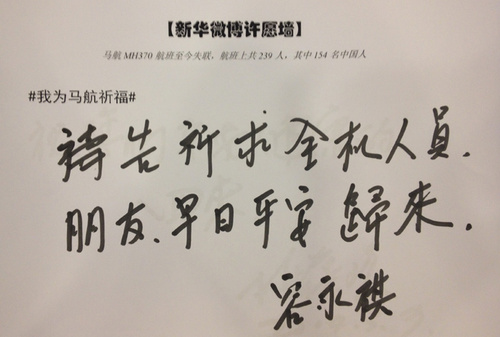 【新华微博许愿墙】
马航 MH370 航班至今失联，航班上共 239 人，其中 154 名中国人
#我为马航祈福#
祷告祈求全机人員.
朋友.早日平安歸來.
容永祺